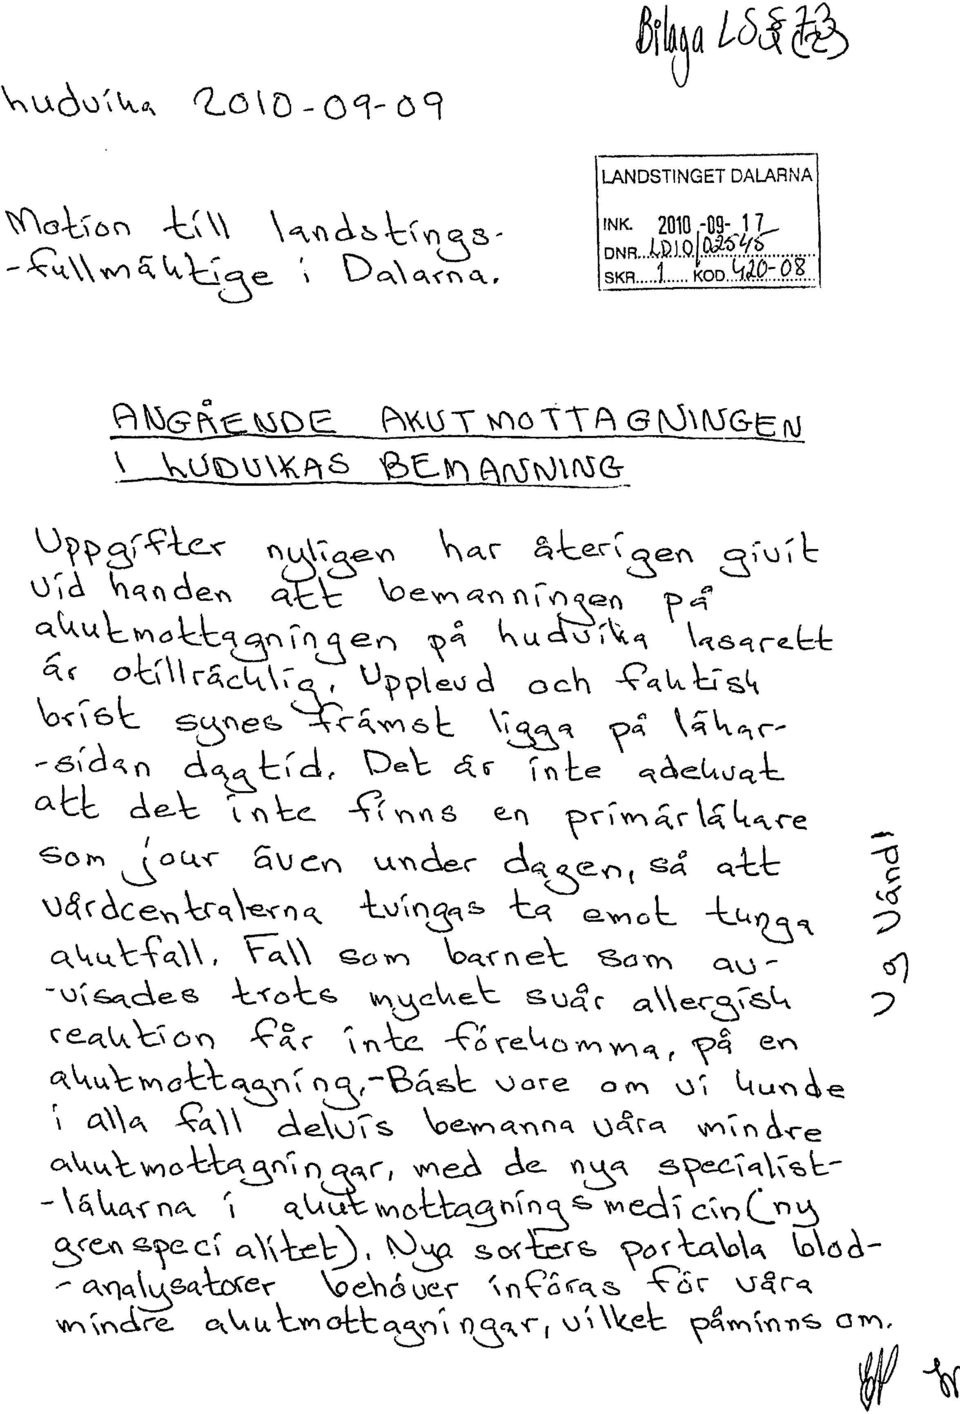 Bilaga LS § 73
Ludvika 2010-09-09
LANDSTINGET DALARNA
INK. 2010 -09- 17
DNR...LD10/02545
SKR.....1...... KOD..420-08
Motion till landstings-
-fullmäktige i Dalarna.
ANGÅENDE AKUTMOTTAGNINGEN
I LUDVIKAS BEMANNING
Uppgifter nyligen har återigen givit
vid handen att bemanningen på
akutmottagningen på Ludvika lasarett
är otillräcklig. Upplevd och faktisk
brist synes främst ligga på läkar-
-sidan dagtid. Det är inte adekvat
att det inte finns en primärläkare
som jour även under dagen, så att
vårdcentralerna tvingas ta emot tunga
akutfall. Fall som barnet som av-
-visades trots mycket svår allergisk
reaktion får inte förekomma, på en
akutmottagning.-Bäst vore om vi kunde
i alla fall delvis bemanna våra mindre
akutmottagningar, med de nya specialist-
-läkarna i akutmottagningsmedicin(ny
grenspecialitet). Nya sorters portabla blod-
-analysatorer behöver införas för våra
mindre akutmottagningar, vilket påminns om.
v g vänd!